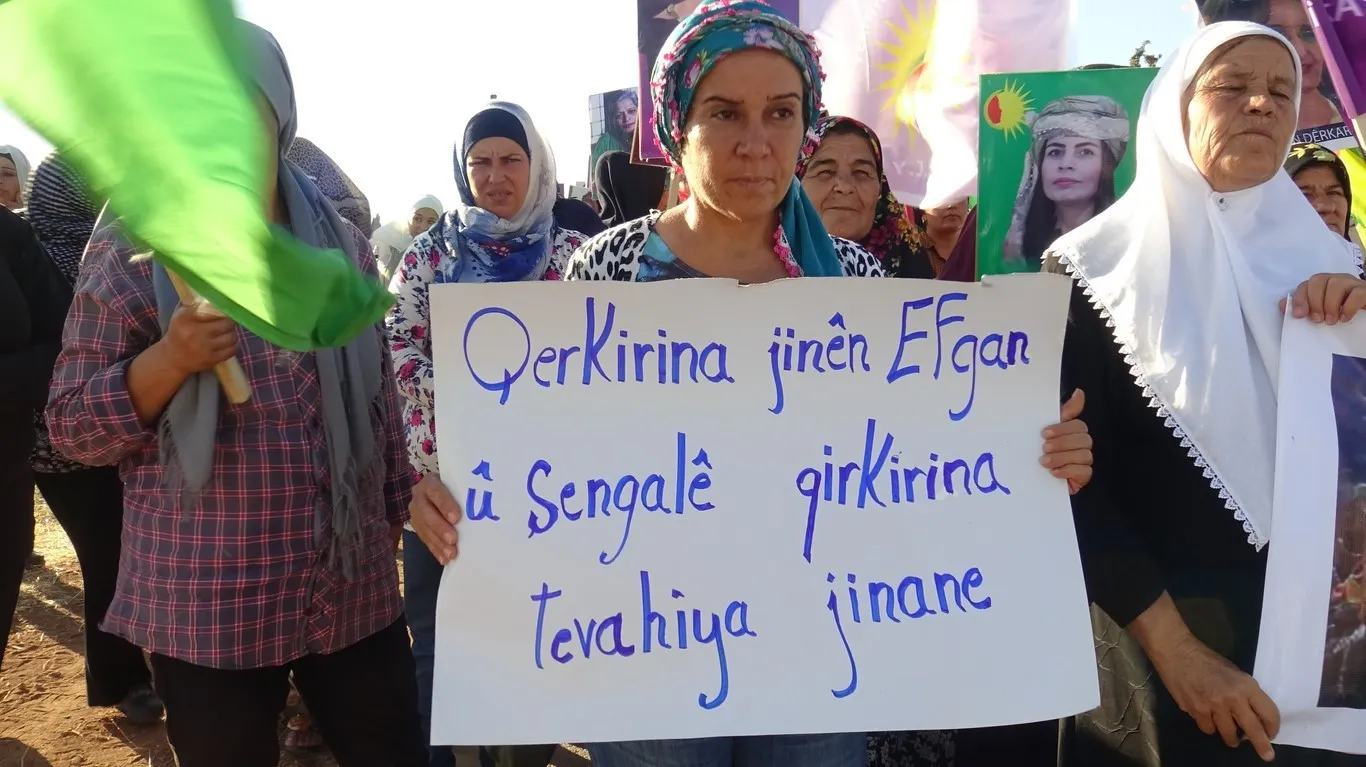 Qerkirina jinên Efgan
û Şengalê qirkirina
tevahiya jinane